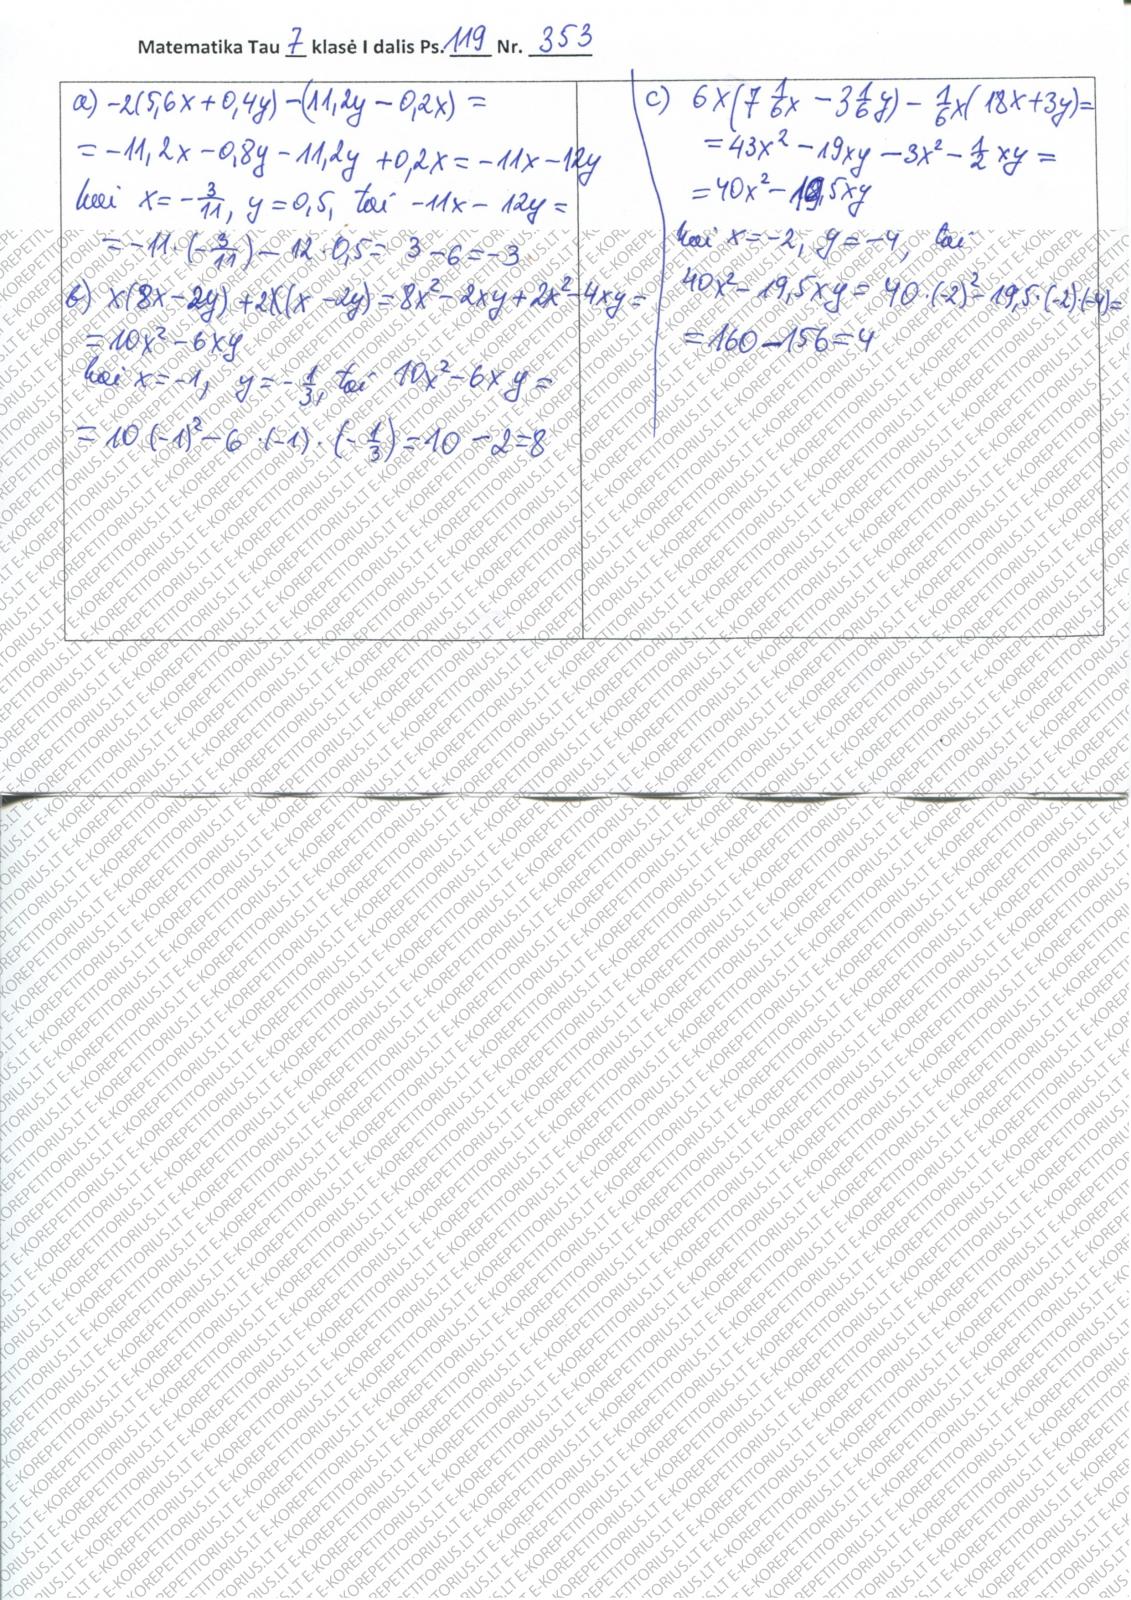 Matematika Tau 7 klasė I dalis Ps. 119 Nr. 353
a) -2(5,6x+0,4y)-(11,2y-0,2x) =
= -11,2x-0,8y-11,2y+0,2x = -11x-12y
kai x=-3/11, y=0,5, tai -11x-12y =
= -11·(-3/11)-12·0,5= 3-6=-3
b) x(8x-2y)+2x(x-2y)=8x²-2xy+2x²-4xy=
=10x²-6xy
kai x=-1, y=-1/3, tai 10x²-6xy=
=10(-1)²-6·(-1)·(-1/3)=10-2=8
c) 6x(7 1/6x-3 1/6y)-1/6x(18x+3y)=
=43x²-19xy-3x²-1/2xy=
=40x²-19,5xy
kai x=-2, y=-4, tai
40x²-19,5xy=40·(-2)²-19,5·(-2)·(-4)=
=160-156=4
E-KOREPETITORIUS.LT